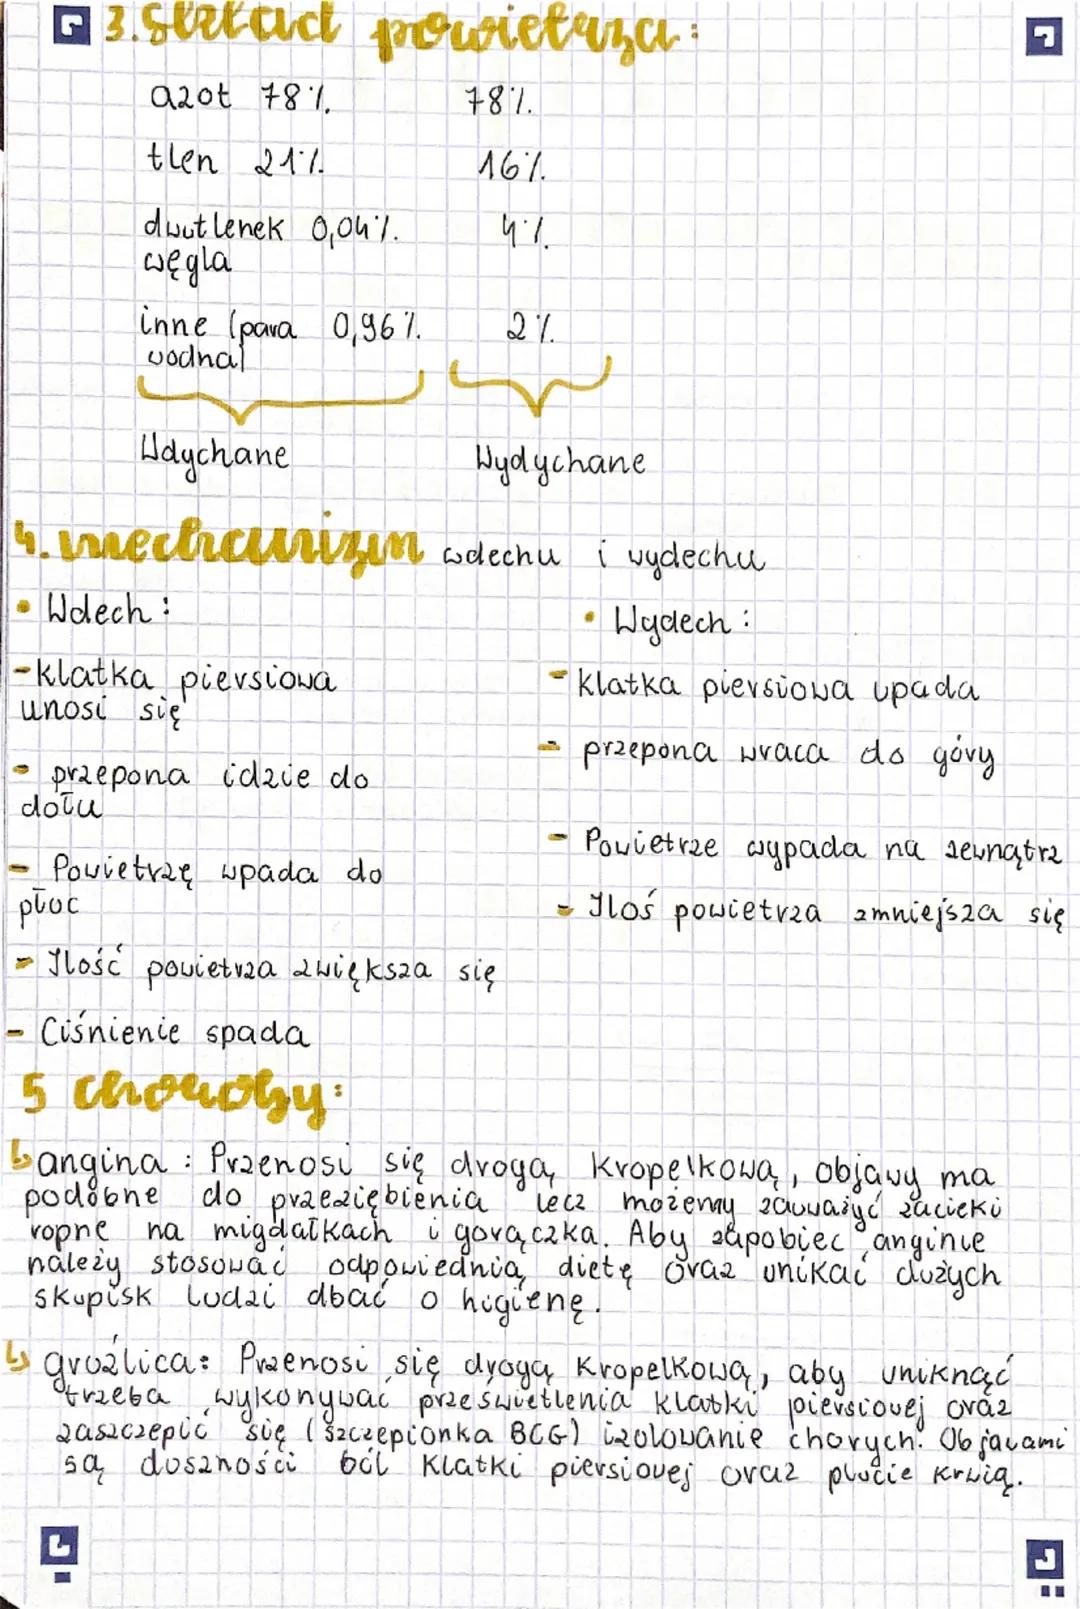 3. skład powietrza:
azot 78%. 78%.
tlen 21%. 16%.
dwutlenek 0,04%. 4%.
węgla
inne (para 0,96%. 2%.
wodna)
Wdychane Wydychane
4. mechanizm wdechu i wydechu
• Wdech:
- klatka piersiowa
unosi się
- przepona idzie do
dołu
- Powietrzę wpada do
płuc
- Ilość powietrza zwiększa się
- Ciśnienie spada
• Wydech:
- klatka piersiowa upada
- przepona wraca do góry
- Powietrze wypada na zewnątrz
- Iloś powietrza zmniejsza się
5 choroby:
↳ angina: Przenosi się drogą kropelkową, objawy ma
podobne do przeziębienia lecz możemy zauważyć zacieki
ropne na migdałkach i gorączka. Aby zapobiec anginie
należy stosować odpowiednią dietę oraz unikać dużych
skupisk ludzi dbać o higienę.
↳ gruźlica: Przenosi się drogą kropelkową, aby uniknąć
trzeba wykonywać prześwietlenia klatki piersiowej oraz
zaszczepić się (szczepionka BCG) izolowanie chorych. Objawami
są duszności ból klatki piersiowej oraz plucie krwią.